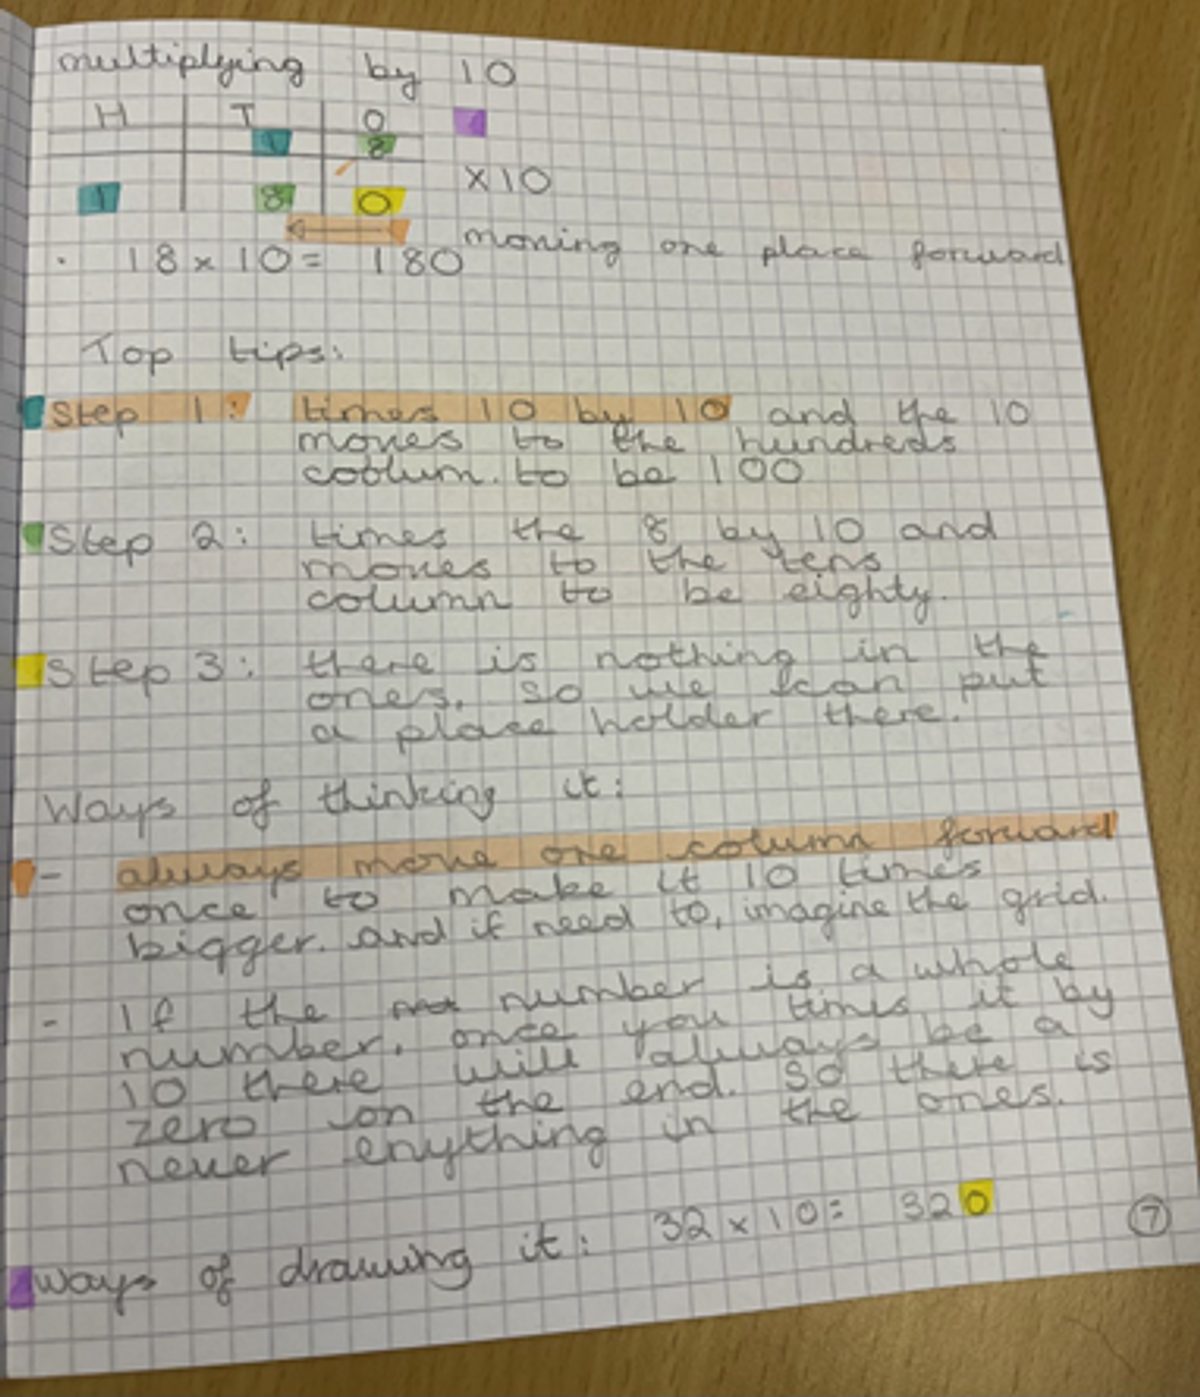 multiplying by 10
H T O
1 8
x10
1 8 0
moving one place forward
· 18 x 10 = 180
Top tips:
Step 1: times 10 by 10 and the 10
moves to the hundreds
coolum. to be 100
Step 2: times the 8 by 10 and
moves to the tens
column to be eighty.
Step 3: there is nothing in the
ones. so we can put
a place holder there.
Ways of thinking it:
- always move one column forward
once to make it 10 times
bigger. and if need to, imagine the grid.
- If the number is a whole
number. once you times it by
10 there will always be a
zero on the end. so there is
never enything in the ones.
32 x 10 = 320
7
Ways of drawing it: